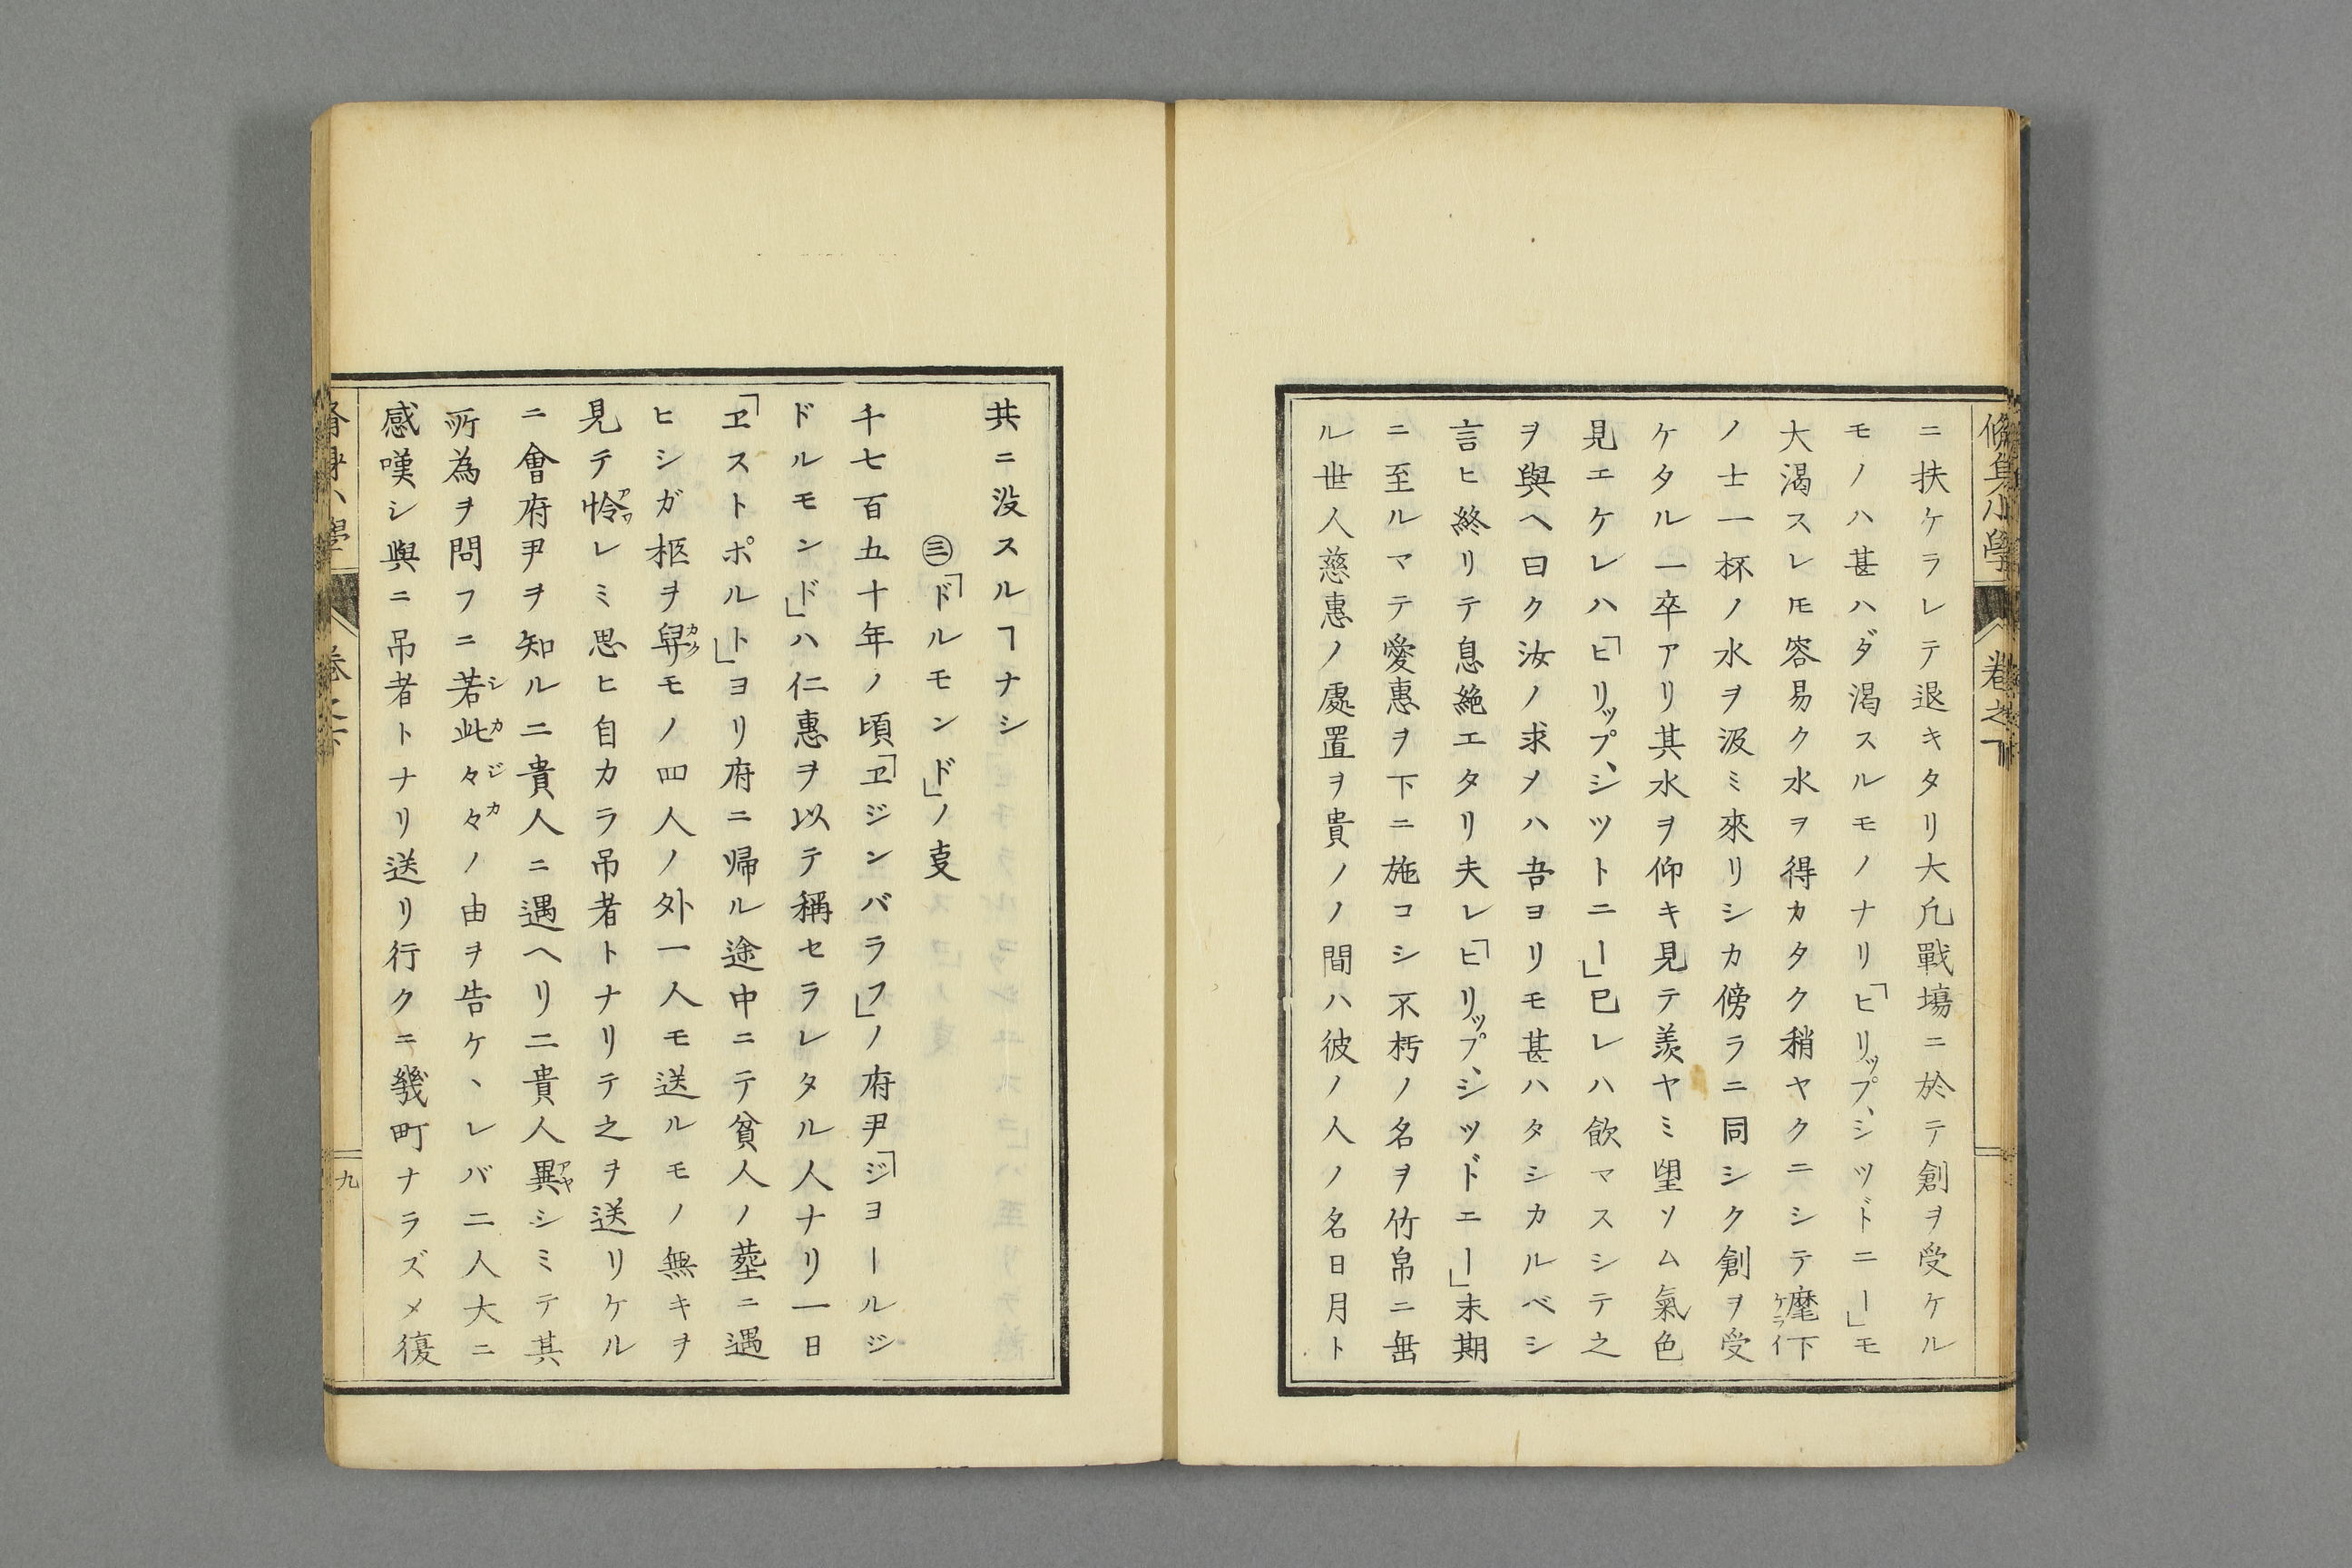 脩身小學 卷之下
ニ扶ケラレテ退キタリ大凡戰塲ニ於テ創ヲ受ケル
モノハ甚ハダ渇スルモノナリ「ヒリップ、シツドニー」モ
大渇スレㇳモ容易ク水ヲ得カタク稍ヤクニシテ麾下ケライ
ノ士一杯ノ水ヲ汲ミ來リシカ傍ラニ同シク創ヲ受
ケタル一卒アリ其水ヲ仰キ見テ羨ヤミ望ソム氣色
見エケレハ「ヒリップ、シツトニー」已レハ飲マスシテ之
ヲ與ヘ曰ク汝ノ求メハ吾ヨリモ甚ハタシカルベシ
言ヒ終リテ息絶エタリ夫レ「ヒリップ、シツドニー」末期
ニ至ルマテ愛惠ヲ下ニ施コシ不朽ノ名ヲ竹帛ニ垂
ル世人慈惠ノ處置ヲ貴ノノ間ハ彼ノ人ノ名日月ト
共ニ没スルヿナシ
㊂「ドルモンド」ノ㕝
千七百五十年ノ頃「ヱジンバラフ」ノ府尹「ジヨールジ
ドルモンド」ハ仁惠ヲ以テ稱セラレタル人ナリ一日
「ヱストポルト」ヨリ府ニ帰ル途中ニテ貧人ノ塟ニ遇
ヒシガ柩ヲ舁カクモノ四人ノ外一人モ送ルモノ無キヲ
見テ怜アワレミ思ヒ自カラ吊者トナリテ之ヲ送リケル
ニ會府尹ヲ知ル二貴人ニ遇ヘリ二貴人異アヤシミテ其
所為ヲ問フニ若此々々シカジカノ由ヲ告ケヽレバ二人大ニ
感嘆シ與ニ吊者トナリ送リ行クニ幾町ナラズメ復
九